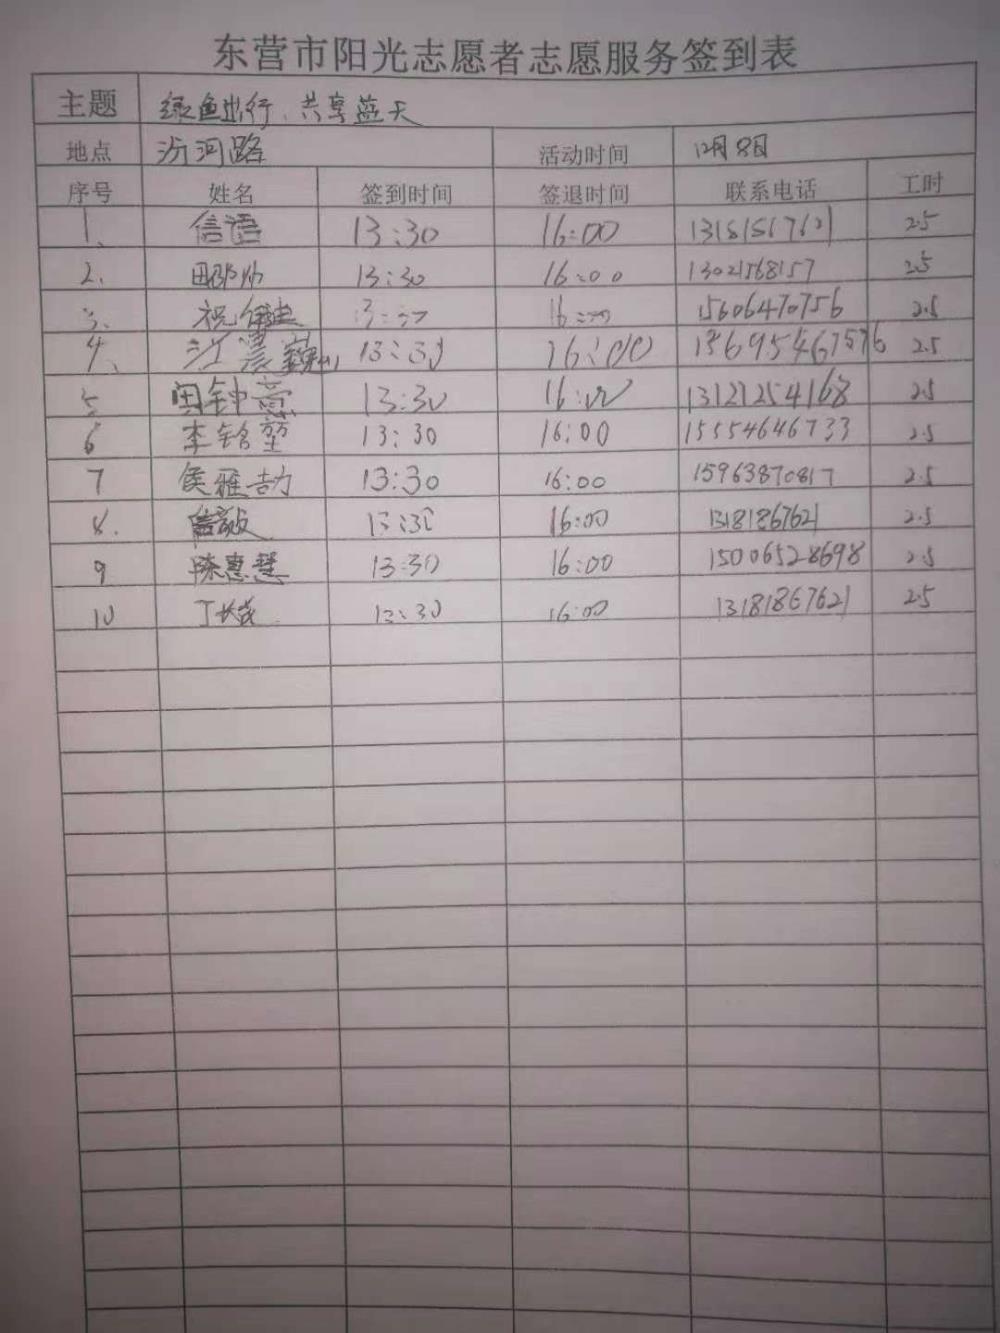 东营市阳光志愿者志愿服务签到表
主题 绿色出行、共享蓝天
地点 汾河路 活动时间 12月8日
序号 姓名 签到时间 签退时间 联系电话 工时
1、 信语 13:30 16:00 2.5
2. 田邵帅 13:30 16:00 13021568157 2.5
3、 祝 15606470756 2.5
4、 江 13:30 16:00 2.5
5 田钟 13:30 16:00 13121254168 2.5
6 李铭堃 13:30 16:00 15554646733 2.5
7 侯雅喆 13:30 16:00 15963870817 2.5
8. 13:30 16:00 13181867621 2.5
9 陈惠慧 13:30 16:00 15006528698 2.5
10 丁长 13:30 16:00 13181867621 2.5